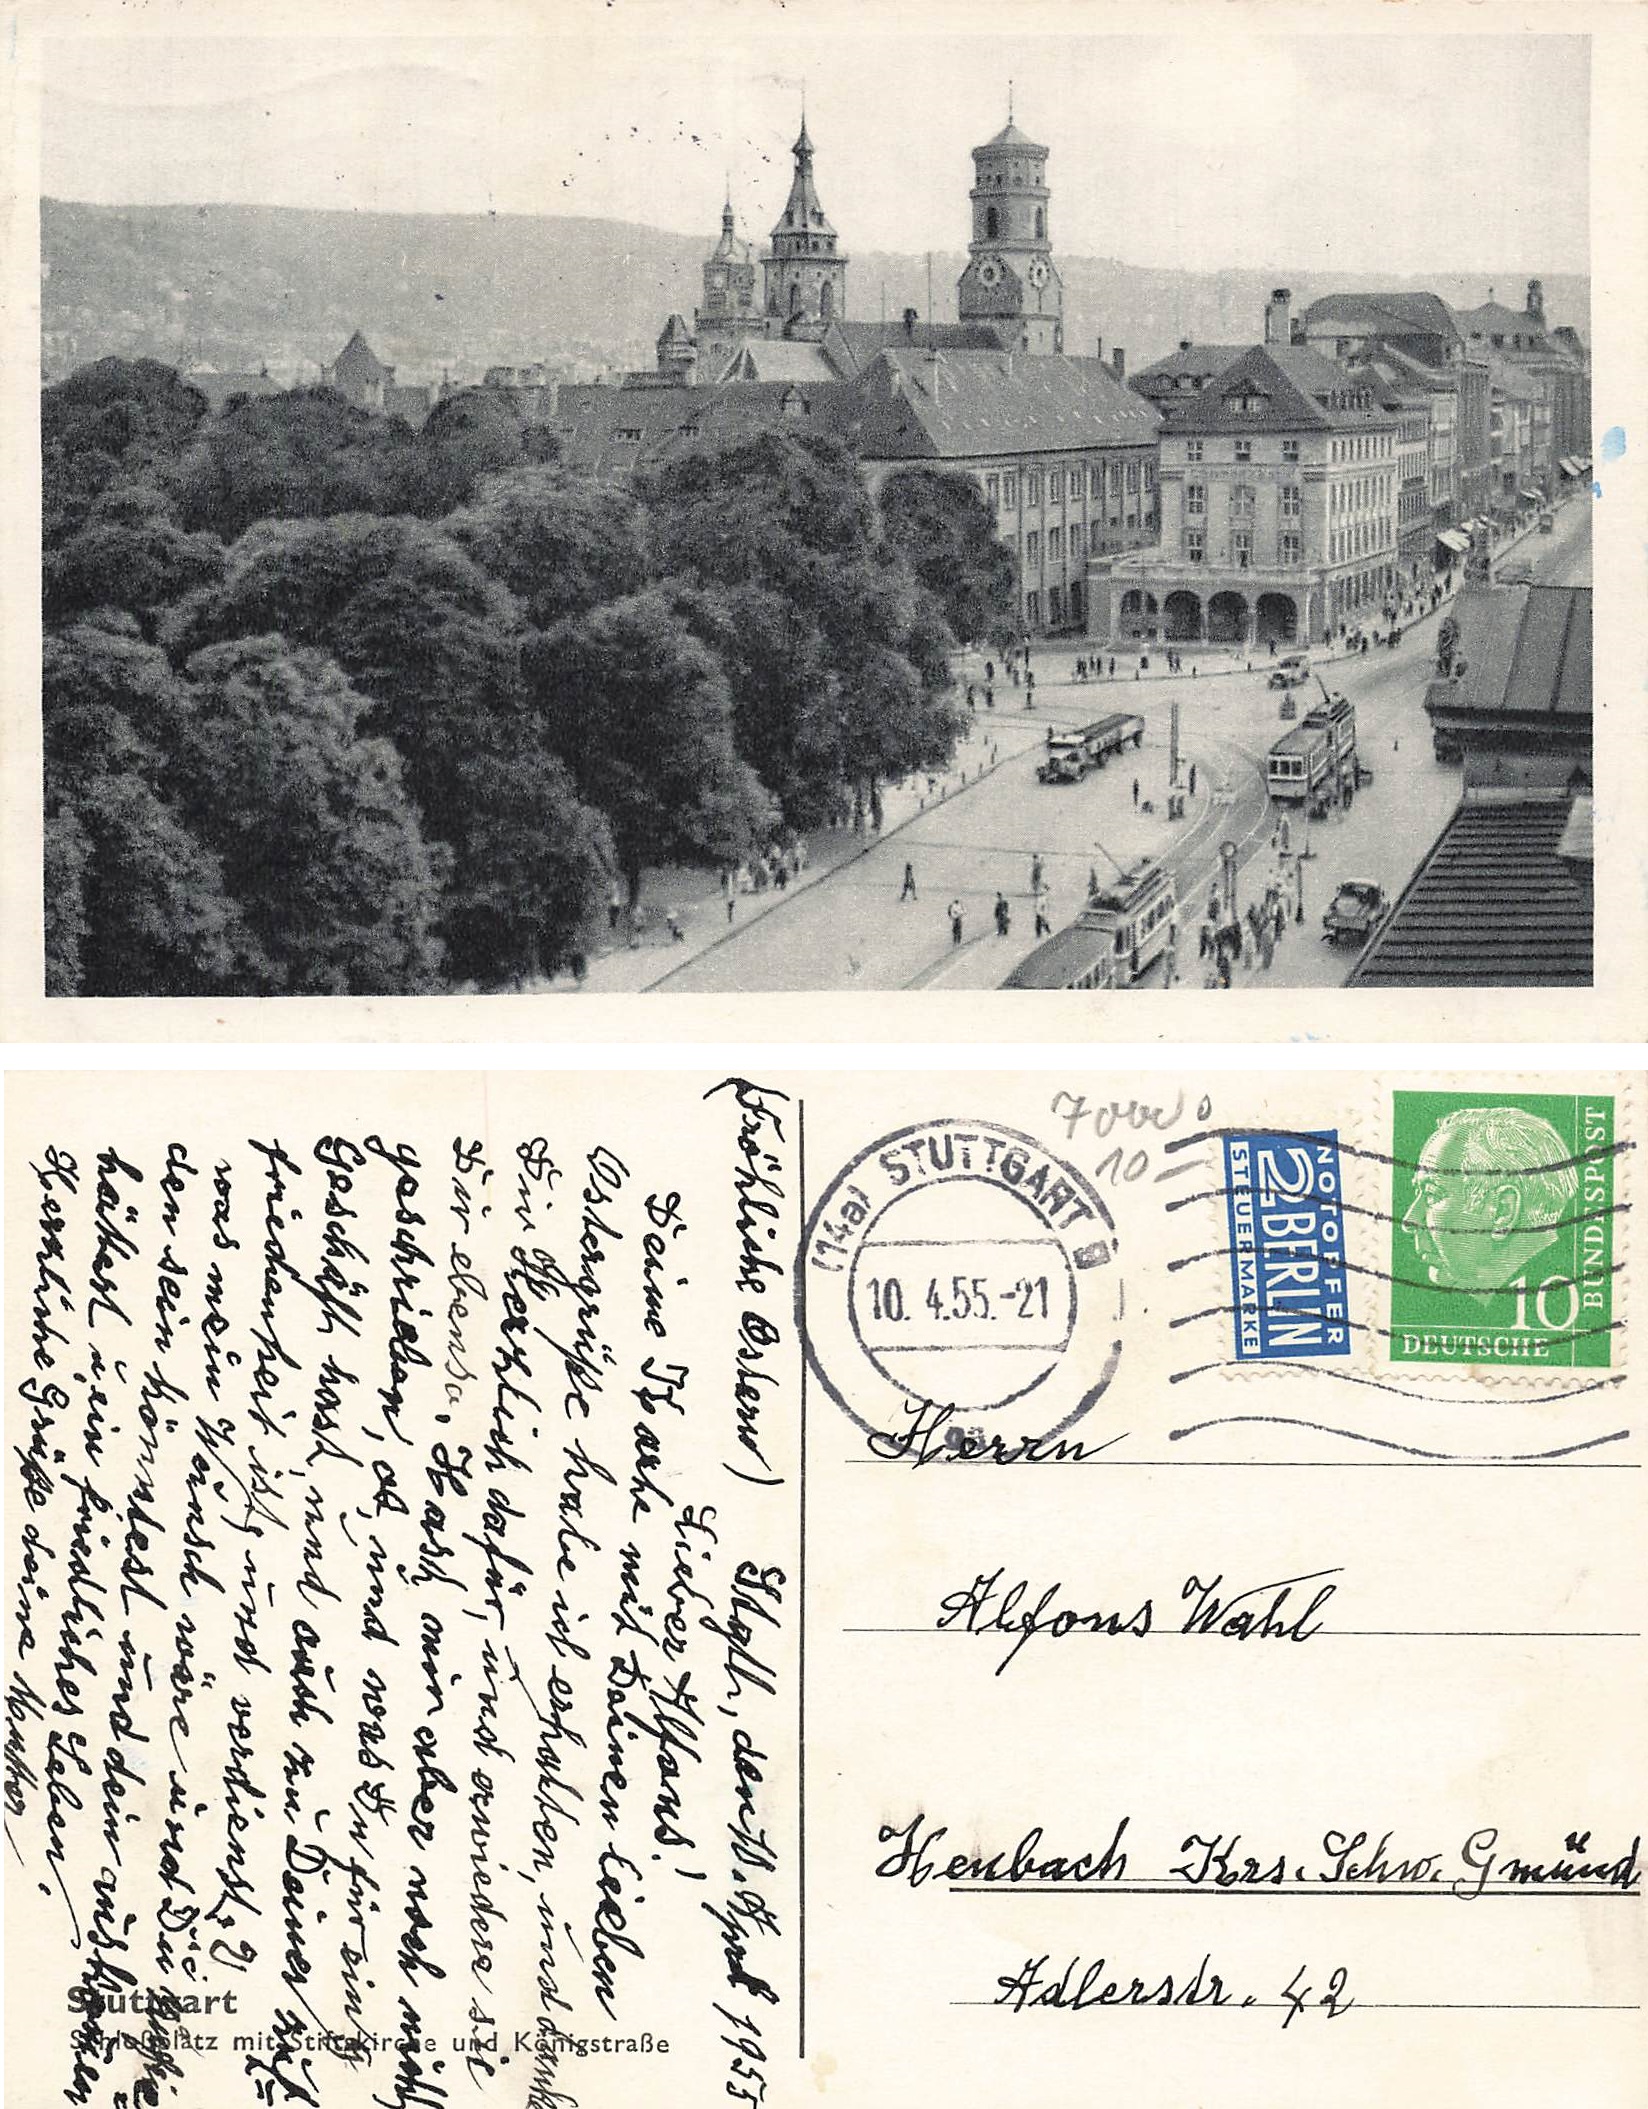 (Fröhliche Ostern)
Stgt., den 18. April 1955
Lieber Alfons!
Deine Karte mit Deinen lieben
Ostergrüße habe ich erhalten, und danke
Dir Herzlich dafür, und erwiedere sie
Dir ebenso. Hast mir aber noch nicht
geschrieben, ob, und was Du für ein
Geschäft hast, und auch zu Deiner Zuf
friedenheit ist, und verdienst?
was mein Wünsch wäre und Du
den sein könntest und dein auskommen
hättest u ein friedliches Leben.
Herzliche Grüße deine Mutter
Stuttgart
Schloßplatz mit Stiftskirche und Königstraße
7000
10
(14a) STUTTGART 9
10. 4.55.-21
NOTOPFER
2 BERLIN
STEUERMARKE
10
DEUTSCHE
BUNDESPOST
Herrn
Alfons Wahl
Heubach Krs. Schw. Gmünd
Adlerstr. 42